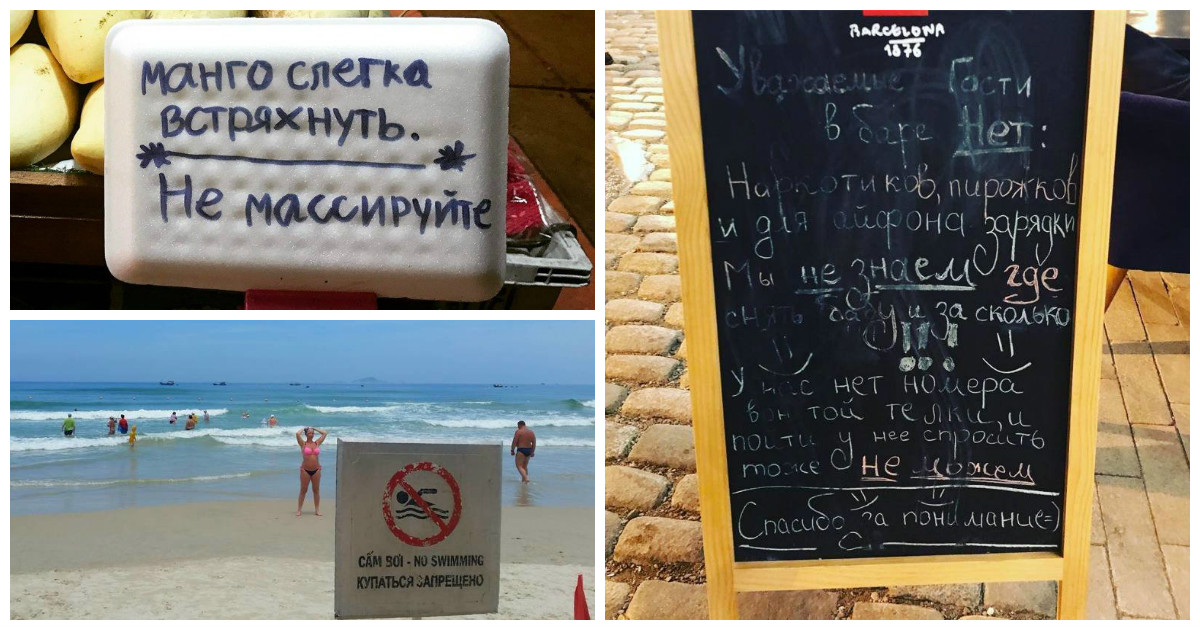 манго слегка
встряхнуть.
Не массируйте
CẤM BƠI - NO SWIMMING
КУПАТЬСЯ ЗАПРЕЩЕНО
BARCELONA
1876
Уважаемые Гости
в баре Нет:
Наркотиков, пирожков
и для айфона зарядки
Мы не знаем где
снять бабу и за сколько
!!!
У нас нет номера
вон той телки, и
пойти у неё спросить
тоже не можем
Спасибо за понимание=)